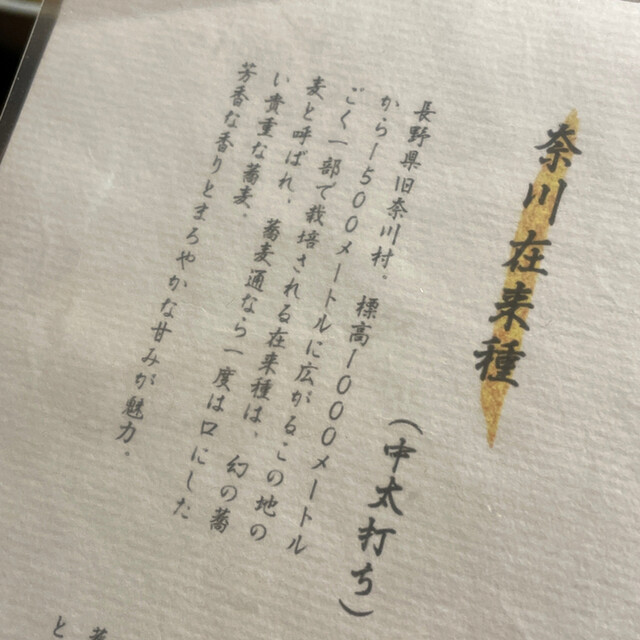 奈川在来種
(中太打ち)
長野県旧奈川村、標高1000メートル
から1500メートルに広がるこの地の
ごく一部で栽培される在来種は、幻の蕎
麦と呼ばれ、蕎麦通なら一度は口にした
い貴重な蕎麦。
芳香な香りとまろやかな甘みが魅力。